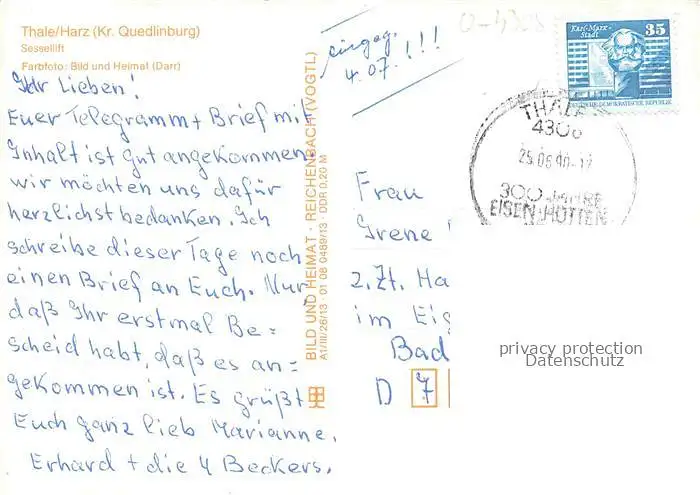 Thale/Harz (Kr. Quedlinburg)
Sessellift
Farbfoto: Bild und Heimat (Darr)
Ihr Lieben!
Euer Telegramm + Brief mit
Inhalt ist gut angekommen,
wir möchten uns dafür
herzlichst bedanken. Ich
schreibe dieser Tage noch
einen Brief an Euch. Nur
daß Ihr erstmal Be=
scheid habt, daß es an=
gekommen ist. Es grüßt
Euch ganz lieb Marianne,
Erhard + die 4 Beckers.
eingeg.
4.07.!!!
BILD UND HEIMAT · REICHENBACH (VOGTL)
A1/III/26/13 · 01 08 0489/13 · DDR 0,20 M
Karl-Marx-
Stadt
35
DEUTSCHE DEMOKRATISCHE REPUBLIK
THALE
4308
25.06.90-17
300 JAHRE
EISEN HÜTTEN
Frau
Irene
z.Zt. Ha
im Eig
Bad
D 7
privacy protection
Datenschutz